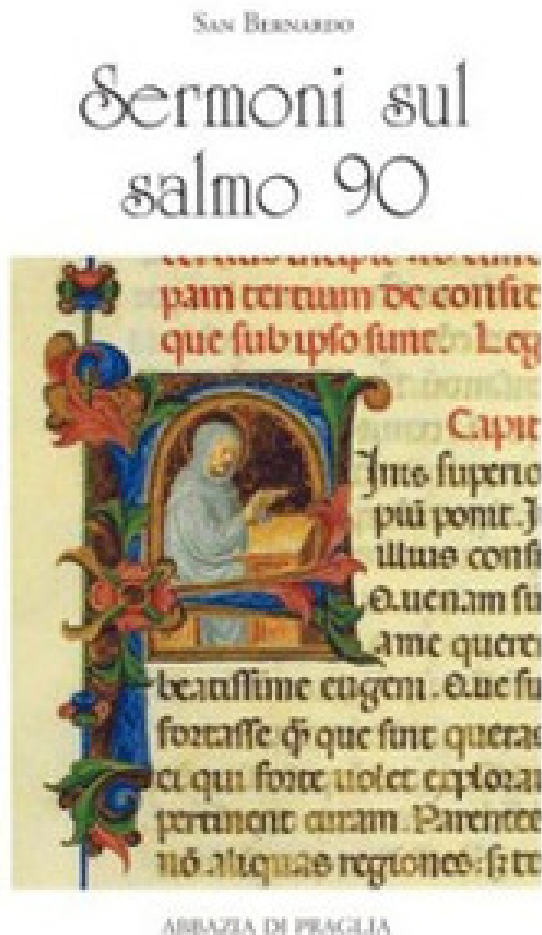 San Bernardo
Sermoni sul
salmo 90
pam tertium de consit
que sub ipso sunt. Leg
Capit
superio
ponit. I
illius consi
Quenam su
ame quere
beatissime eugeni. Que su
fortasse que sint querac
ei qui forte uolet explora
pertinent curam. Parentec
nō aliquas regiones: s; tt
ABBAZIA DI PRAGLIA